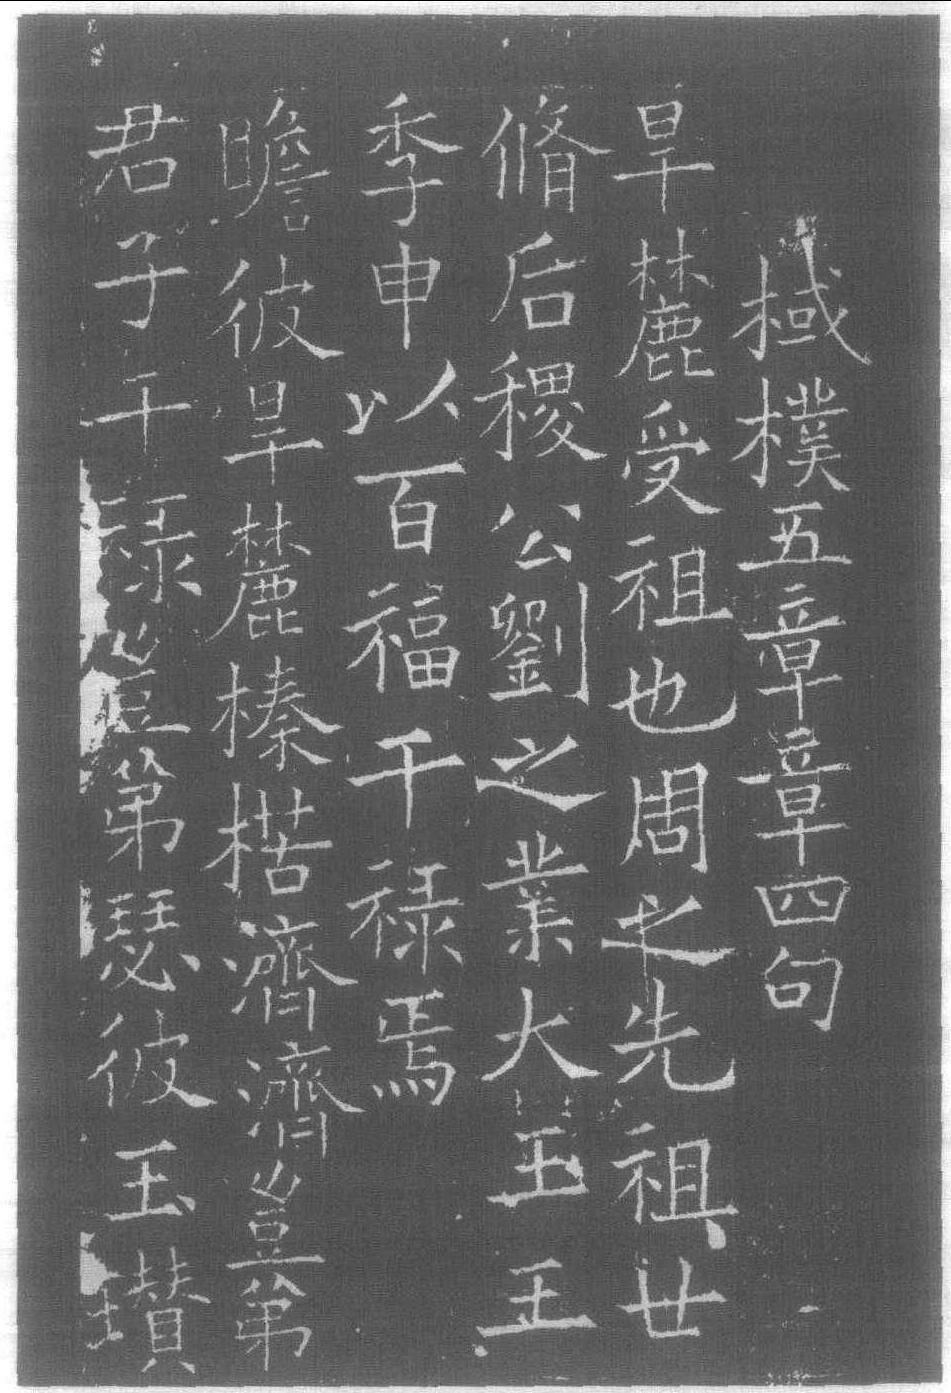 棫樸五章章四句
旱麓受祖也周之先祖世
脩后稷公劉之業大王王
季申以百福干祿焉
瞻彼旱麓榛楛濟濟豈弟
君子干祿豈弟瑟彼玉瓚